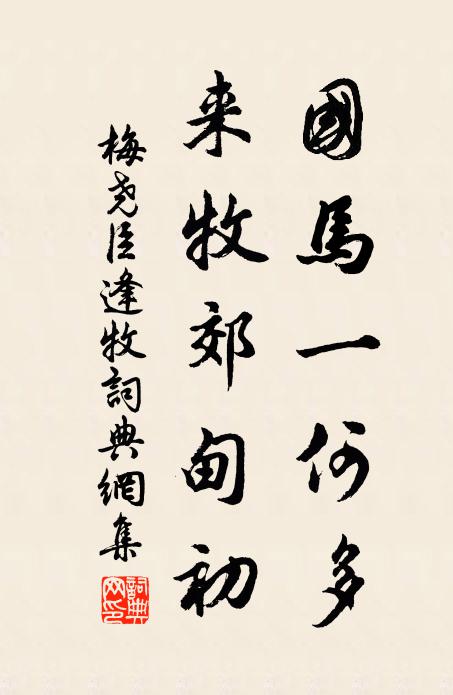 國馬一何多
来牧郊甸初
梅尧臣逢牧詞典網集
詞典網印